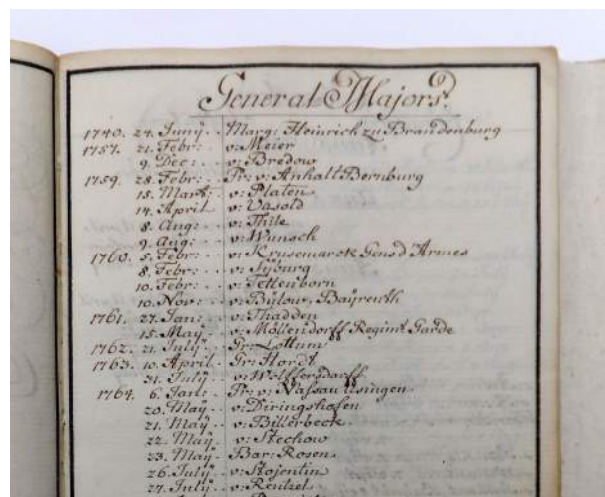 General Majors.
1740. 24. Juny. . Marg: Heinrich zu Brandenburg
1757. 21. Febr: . v: Meier
9. Dec: . . v: Bredow
1759. 28. Febr: . Pr: v: Anhalt Bernburg
15. Mart: . v: Platen
14. April . v: Vasold
8. Aug: . . v: Thile
9. Aug: . . v: Wunsch
1760. 5. Febr: . v: Krusemarck Gensd'Armes
8. Febr: . . v: Syburg
10. Febr: . v: Tettenborn
10. Nov: . . v: Bülow, Bayreuth
1761. 27. Jan: . . v: Thadden
15. May . . v: Möllendorff Regimt Garde
1762. 21. July . . Gr: Lottum
1763. 10. April . Gr: Hordt
31. July . v: Wolffersdorff
1764. 6. Jan: . . Pr: v: Nassau Usingen
20. May . . v: Diringshofen
21. May . . v: Billerbeck
22. May . . v: Stechow
23. May . . Bar: Rosen
26. July . . v: Stojentin
27. July . . v: Rentzel